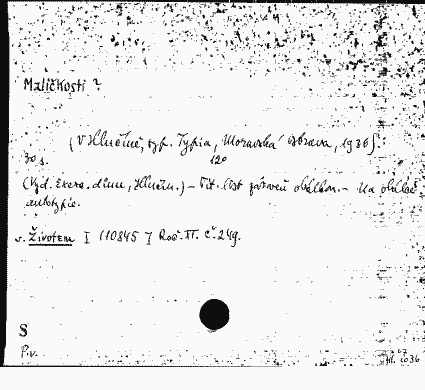 Maličkosti ?
(V Hlučíně, typ. Typia, Moravská Ostrava, 1936).
30 s. 12°
(Vyd. Exerc. dům, Hlučín.) – Tit. list zároveň obálkou. – Na obálce
autotypie.
v. Životem I 110845 / Roč. III. č. 249.
S
P.v.
1036